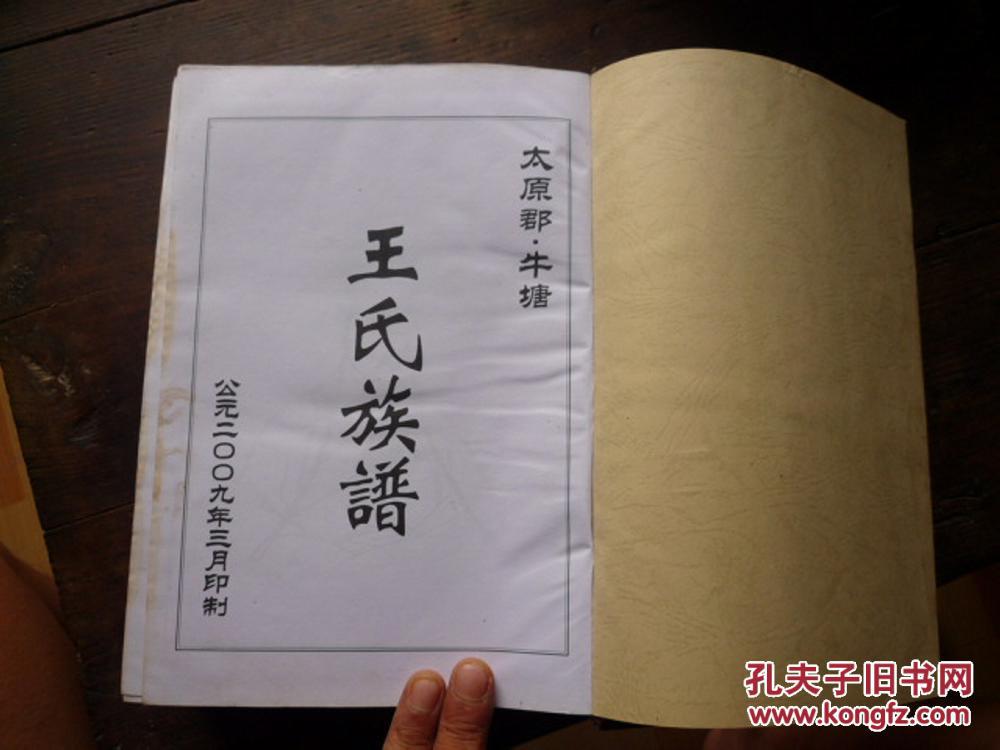 太原郡·牛塘
王氏族譜
公元二〇〇九年三月印制
孔夫子旧书网
www.kongfz.com